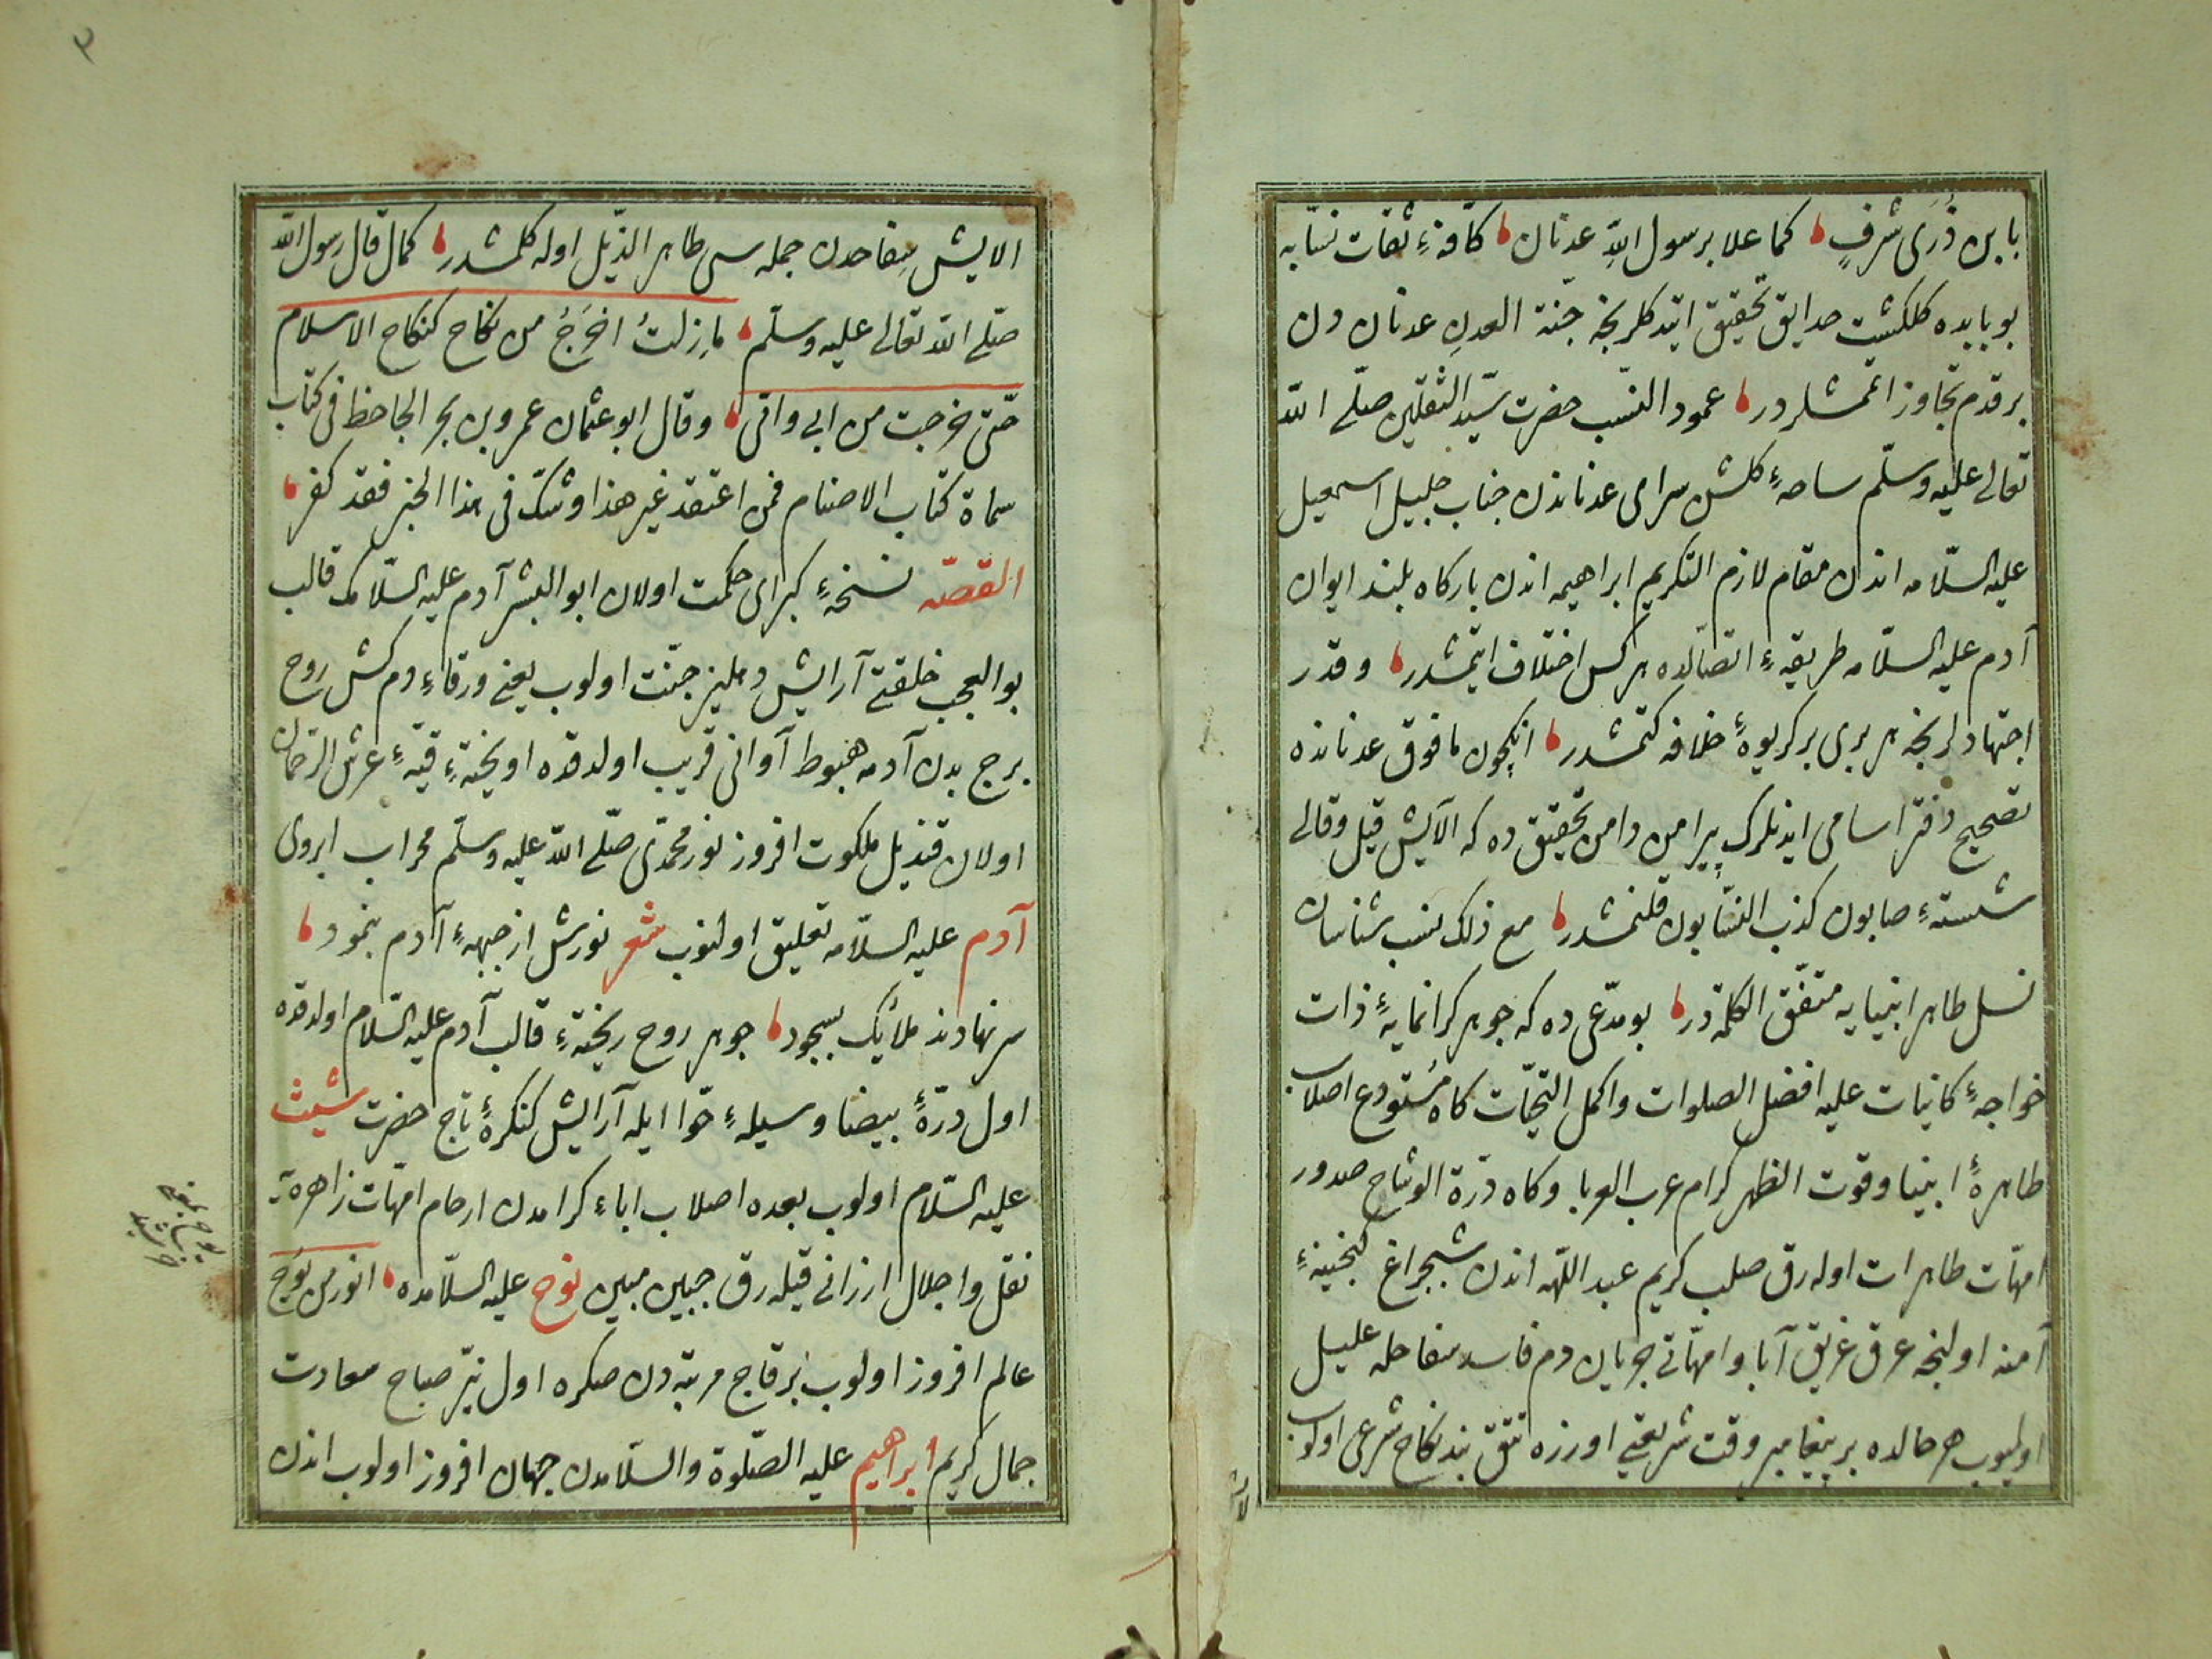 بابن ذُرَی شرفٍ كما علا برسول اللهِ عدنان كافهٔ ثقات نسّابه
بو بابده كلكشیت حدایق تحقیق ایتدكلرنجه جنّة العدن عدنان دن
بر قدم تجاوز اتمشلردر عمود النسب حضرت سیّد الثقلین صلّی الله
تعالی علیه وسلّم ساحهٔ كلشن سرای عدناندن جناب جلیل اسمعیل
علیه السلامه اندن مقام لازم التكریم ابراهیمه اندن باركاه بلند ایوان
آدم علیه السلامه طریقهٔ اتصالده هركس اختلاف ایتمشدر وقدر
اجتهادلرنجه هر بری بر كریوهٔ خلافه كتمشدر انكچون مافوق عدنانده
تصحیح دفتر اسامی ایدنلرك پیرامن دامن تحقیق ده كه آلایش قیل وقالی
شستهٔ صابون كذب النسّابون قلنمشدر مع ذلك نسب شناسان
نسل طاهر انبیایه متفّق الكلمه در بو مدّعی ده كه جوهر كرانمایهٔ ذات
خواجهٔ كائنات علیه افضل الصلوات واكمل التحیّات كاه مُستودع اصلاب
طاهرهٔ انبیا وقوت الظهر كرام عرب العربا وكاه درّة الوشاح صدور
امّهات طاهرات اوله رق صلب كریم عبد اللّهه اندن شبچراغ كنجینهٔ
آمنه اولنجه عرق غریق آبا وامّهاتی جریان دم فاسد سفاحله علیل
اولمیوب هر حالده بر پیغامبر وقت شریعتی اوزره تتق بند نكاح شرعی اولوب
الایش سِفاحدن جمله سی طاهر الذّیل اوله كلمشدر كمال قال رسول الله
صلّی الله تعالی علیه وسلّم ما زلتُ اَخرُجُ من نكاح كنكاح الاسلام
حتّی خرجت من ابی وامّی وقال ابو عثمان عمرو بن بحر الجاحظ فی كتاب
سماه كتاب الاصنام فمن اعتقد غیر هذا وشكّ فی هذا الخبر فقد كفر
القصّه نسخهٔ كبرای حكمت اولان ابو البشر آدم علیه السّلامك قالب
بوالعجب خلقتی آرایش دهلیز جنّت اولوب یعنی ورقاء دم كش روح
برج بدن آدمه هبوط آوانی قریب اولدقده اویختهٔ قبّهٔ عرش الرّحمان
اولان قندیل ملكوت افروز نور محمّدی صلّی الله علیه وسلّم محراب ابروی
آدم علیه السلامه تعلیق اولنوب شعر نورش از جبههٔ آدم بنمود
سرنهادند ملائك بسجود جوهر روح ریختهٔ قالب آدم علیه السّلام اولدقده
اول درّهٔ بیضا وسیلهٔ حوّا ایله آرایش كنكرهٔ تاج حضرت شیث
علیه السّلام اولوب بعده اصلاب اباء كرامدن ارحام امّهات زاهره یه
نقل واجلال ارزانی قیله رق جبین مبین نوح علیه السلامده انور من یُوح
عالم افروز اولوب برقاچ مرتبه دن صكره اول نیّر صباح سعادت
جمال كریم ابراهیم علیه الصّلوة والسّلامدن جهان افروز اولوب اندن